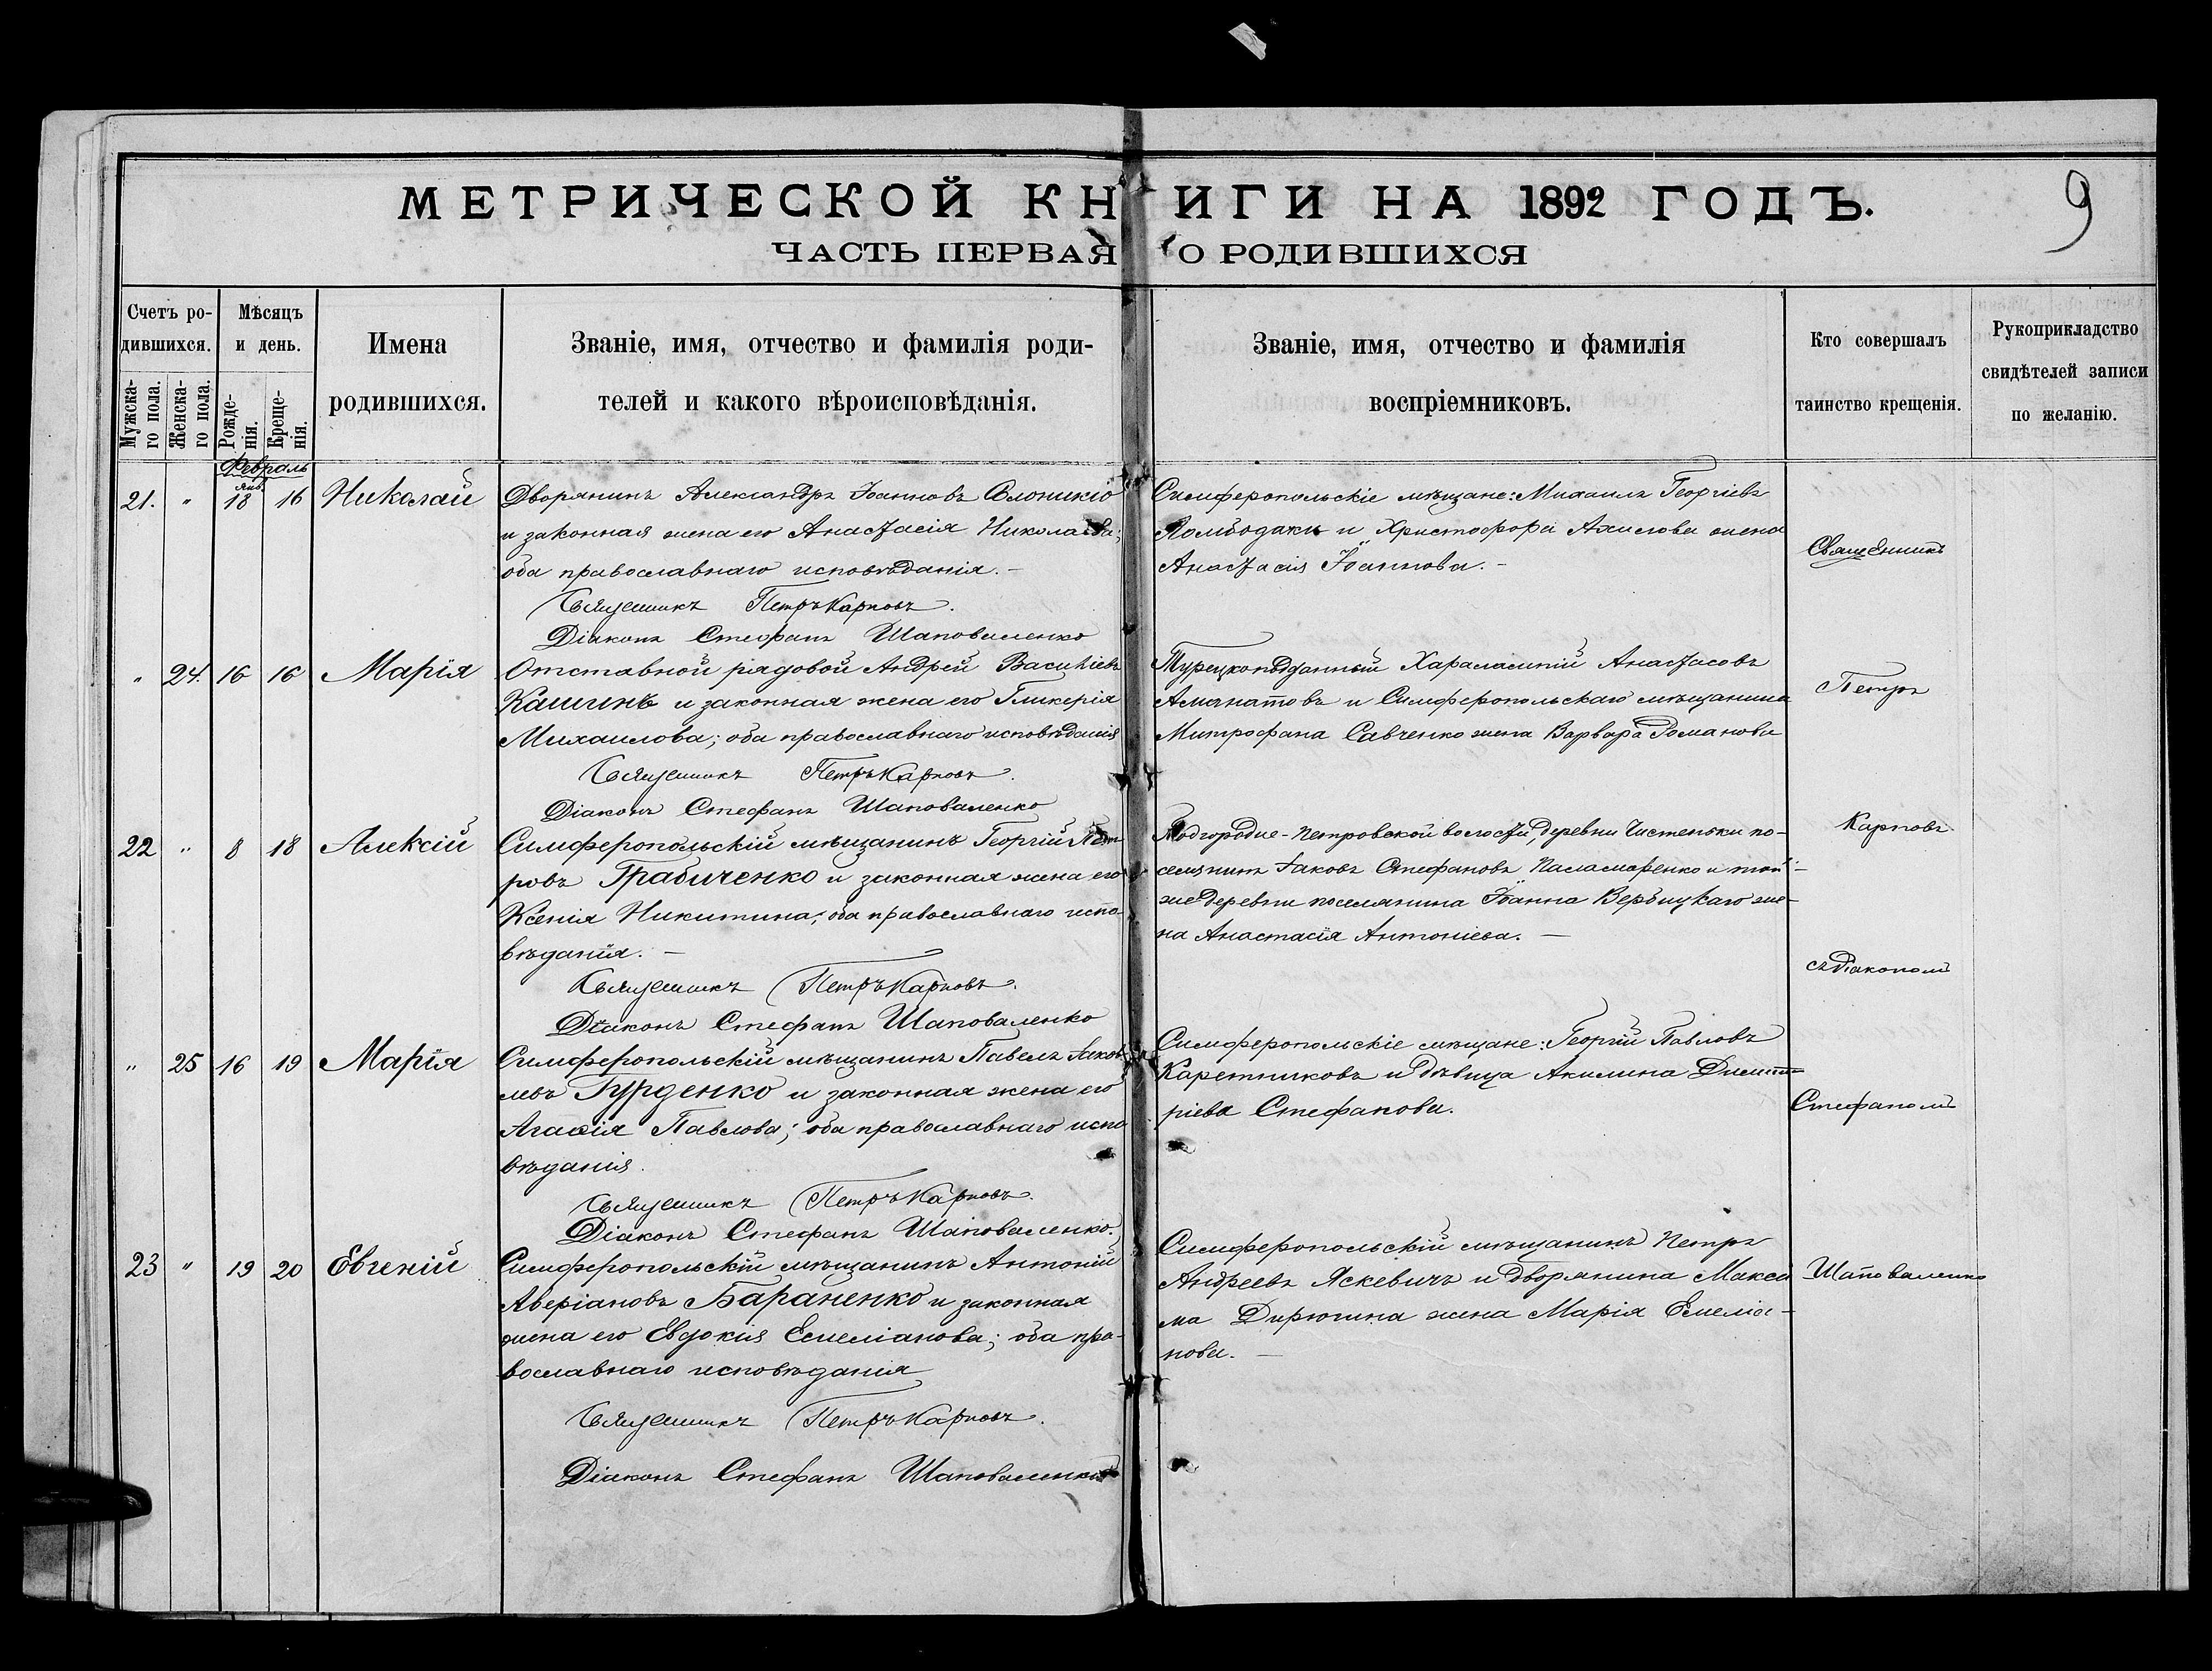 МЕТРИЧЕСКОЙ КНИГИ НА 1892 ГОДЪ.
9
ЧАСТЬ ПЕРВАЯ О РОДИВШИХСЯ
Счетъ ро-
дившихся.
Мужска-
го пола.
Женска-
го пола.
Мѣсяцъ
и день.
Рожде-
нія.
Креще-
нія.
Имена
родившихся.
Званіе, имя, отчество и фамилія роди-
телей и какого вѣроисповѣданія.
Званіе, имя, отчество и фамилія
воспріемниковъ.
Кто совершалъ
таинство крещенія.
Рукоприкладство
свидѣтелей записи
по желанію.
Февраль
Янв.
21. " 18 16 Николай
Дворянинъ Александръ Іоанновъ
и законная жена его Анастасія Николаева;
оба православнаго исповѣданія. -
Священникъ Петръ Карповъ.
Діаконъ Стефанъ Шаповаленко
Симферопольскіе мѣщане: Михаилъ Георгіевъ
и Христофора жена
Анастасія Іоаннова. -
" 24. 16 16 Марія
Отставной рядовой Андрей Василіевъ
Кашинъ и законная жена его Гликерія
Михаилова; оба православнаго исповѣданія
Священникъ Петръ Карповъ.
Діаконъ Стефанъ Шаповаленко
Турецкоподданный Харалампій Анастасовъ
и Симферопольскаго мѣщанина
Митрофана Савченко жена Варвара Романова
22 " 8 18 Алексій
Симферопольскій мѣщанинъ Георгій Пет-
ровъ Грабиченко и законная жена его
Ксенія Никитина; оба православнаго испо-
вѣданія. -
Священникъ Петръ Карповъ.
Діаконъ Стефанъ Шаповаленко
Подгородне-Петровской волости, деревни Чистеньки по-
селянинъ Іаковъ Стефановъ Паламаренко и той-
же деревни поселянина Іоанна Вербицкаго же-
на Анастасія Антоніева. -
" 25 16 19 Марія
Симферопольскій мѣщанинъ Павелъ Іаков-
левъ Гурденко и законная жена его
Агафія Павлова; оба православнаго испо
вѣданія.
Священникъ Петръ Карповъ.
Діаконъ Стефанъ Шаповаленко.
Симферопольскіе мѣщане: Георгій Павловъ
Каретниковъ и дѣвица Акилина Димит-
ріева Стефанова.
23 " 19 20 Евгеній
Симферопольскій мѣщанинъ Антоній
Аверіановъ Бараненко и законная
жена его Евдокія Емеліанова; оба пра-
вославнаго исповѣданія
Священникъ Петръ Карповъ.
Діаконъ Стефанъ Шаповаленко
Симферопольскій мѣщанинъ Петръ
Андреевъ Яскевичъ и дворянина Макси
ма Дирюгина жена Марія Емеліа-
нова. -
Священникъ
Петръ
Карповъ
съ діакономъ
Стефаномъ
Шаповаленко